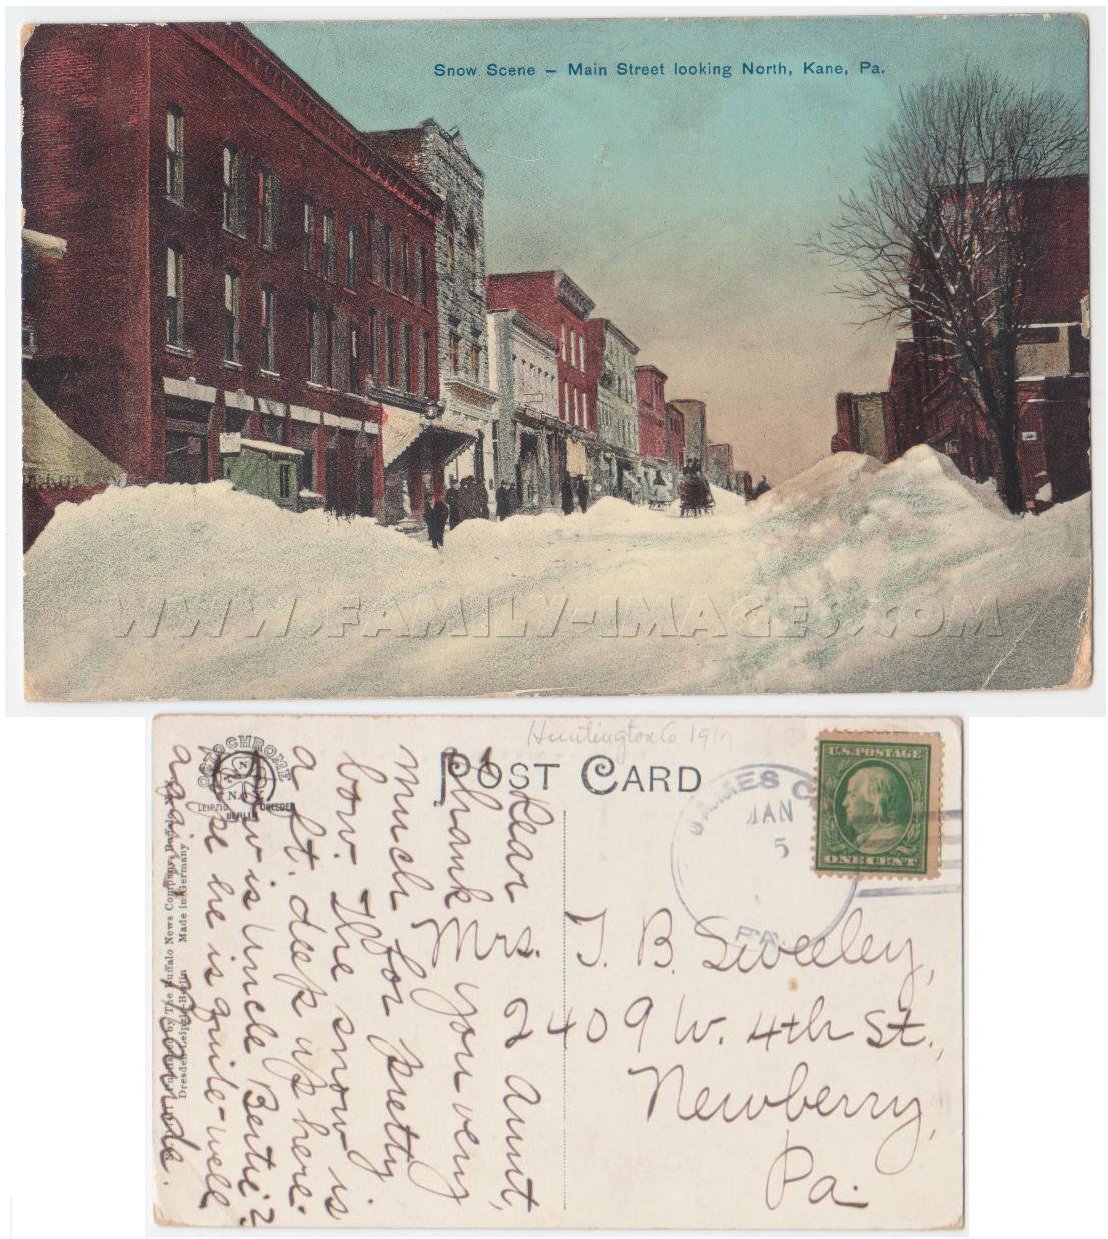 Snow Scene – Main Street looking North, Kane, Pa.
WWW.FAMILY-IMAGES.COM
Huntington Co 191
POST CARD
OCTOCHROME
N
LEIPZIG
BERLIN
DRESDEN
JAMES C
JAN
5
PA.
U.S. POSTAGE
ONE CENT
Mrs. T. B. Sweeley,
2409 W. 4th St.,
Newberry,
Pa.
Dear Aunt,
thank you very
much for pretty
bow. The snow is
a ft. deep up here.
How is Uncle Bertie?
hope he is quite-well
again.
Published by The Buffalo News Company, Buffalo, N.Y.
Dresden-Leipzig-Berlin Made in Germany